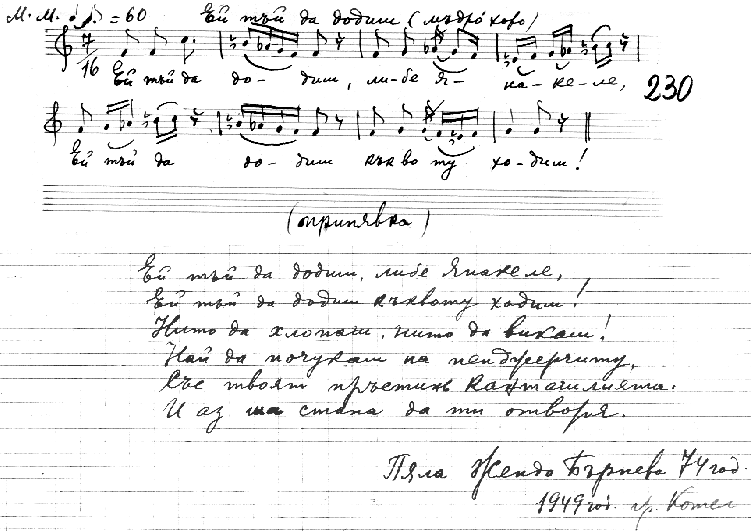 М. М. ♩ ♪. = 60 Ей тъй да додиш (мъдро хоро)
7/16
Ей тъй да до-диш, ли-бе Я-на-ке-ле,
230
Ей тъй да до-диш къкво ту хо-диш!
(припявка)
Ей тъй да додиш, либе Янакеле,
Ей тъй да додиш къквоту ходиш!
Нито да хлопаш, нито да викаш!
Най да почукаш на пенджерчиту,
Със твоят пръстинь
И аз ша стана да ти отворя.
Пяла Жендо Бърнева 74 год.
1949 год. гр. Котел